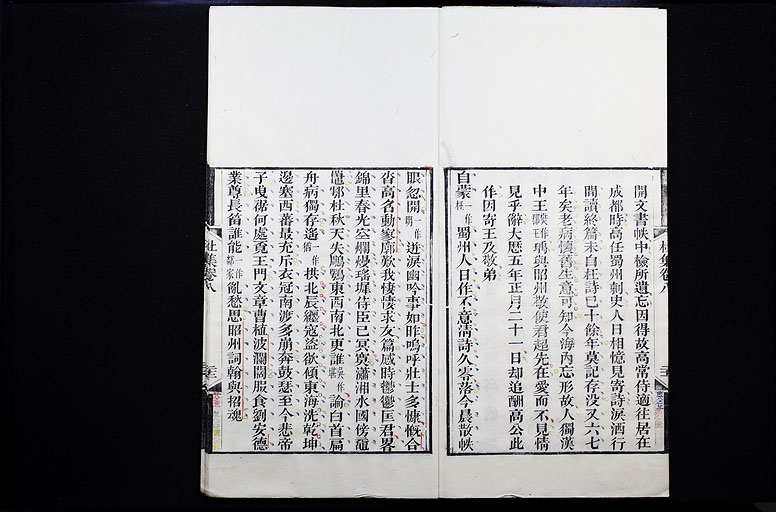 開文書帙中檢所遺忘因得故高常侍適往居在
成都時高任蜀州刺史人日相憶見寄詩淚洒行
間讀終篇末自枉詩已十餘年莫記存沒又六七
年矣老病懷舊生意可知今海內忘形故人獨漢
中王瑀與昭州敬使君超先在愛而不見情
見乎辭大曆五年正月二十一日却追酬高公此
作因寄王及敬弟
自蒙一作枉蜀州人日作不意清詩久零落今晨散帙
眼忽開一作明迸淚幽吟事如昨嗚呼壯士多慷慨合
沓高名動寥廓歎我悽悽求友篇感時鬱鬱匡君畧
錦里春光空爛熳瑤墀侍臣已冥寞瀟湘水國傍黿
鼉鄠杜秋天失鵰鶚東西南北更誰論白首扁
舟病獨存遙一作猶拱北辰纏寇盜欲傾東海洗乾坤
邊塞西蕃最充斥衣冠南渡多崩奔鼓瑟至今悲帝
子曳裾何處覓王門文章曹植波瀾闊服食劉安德
業尊長笛誰能一作鄰家亂愁思昭州詞翰與招魂
杜集卷八